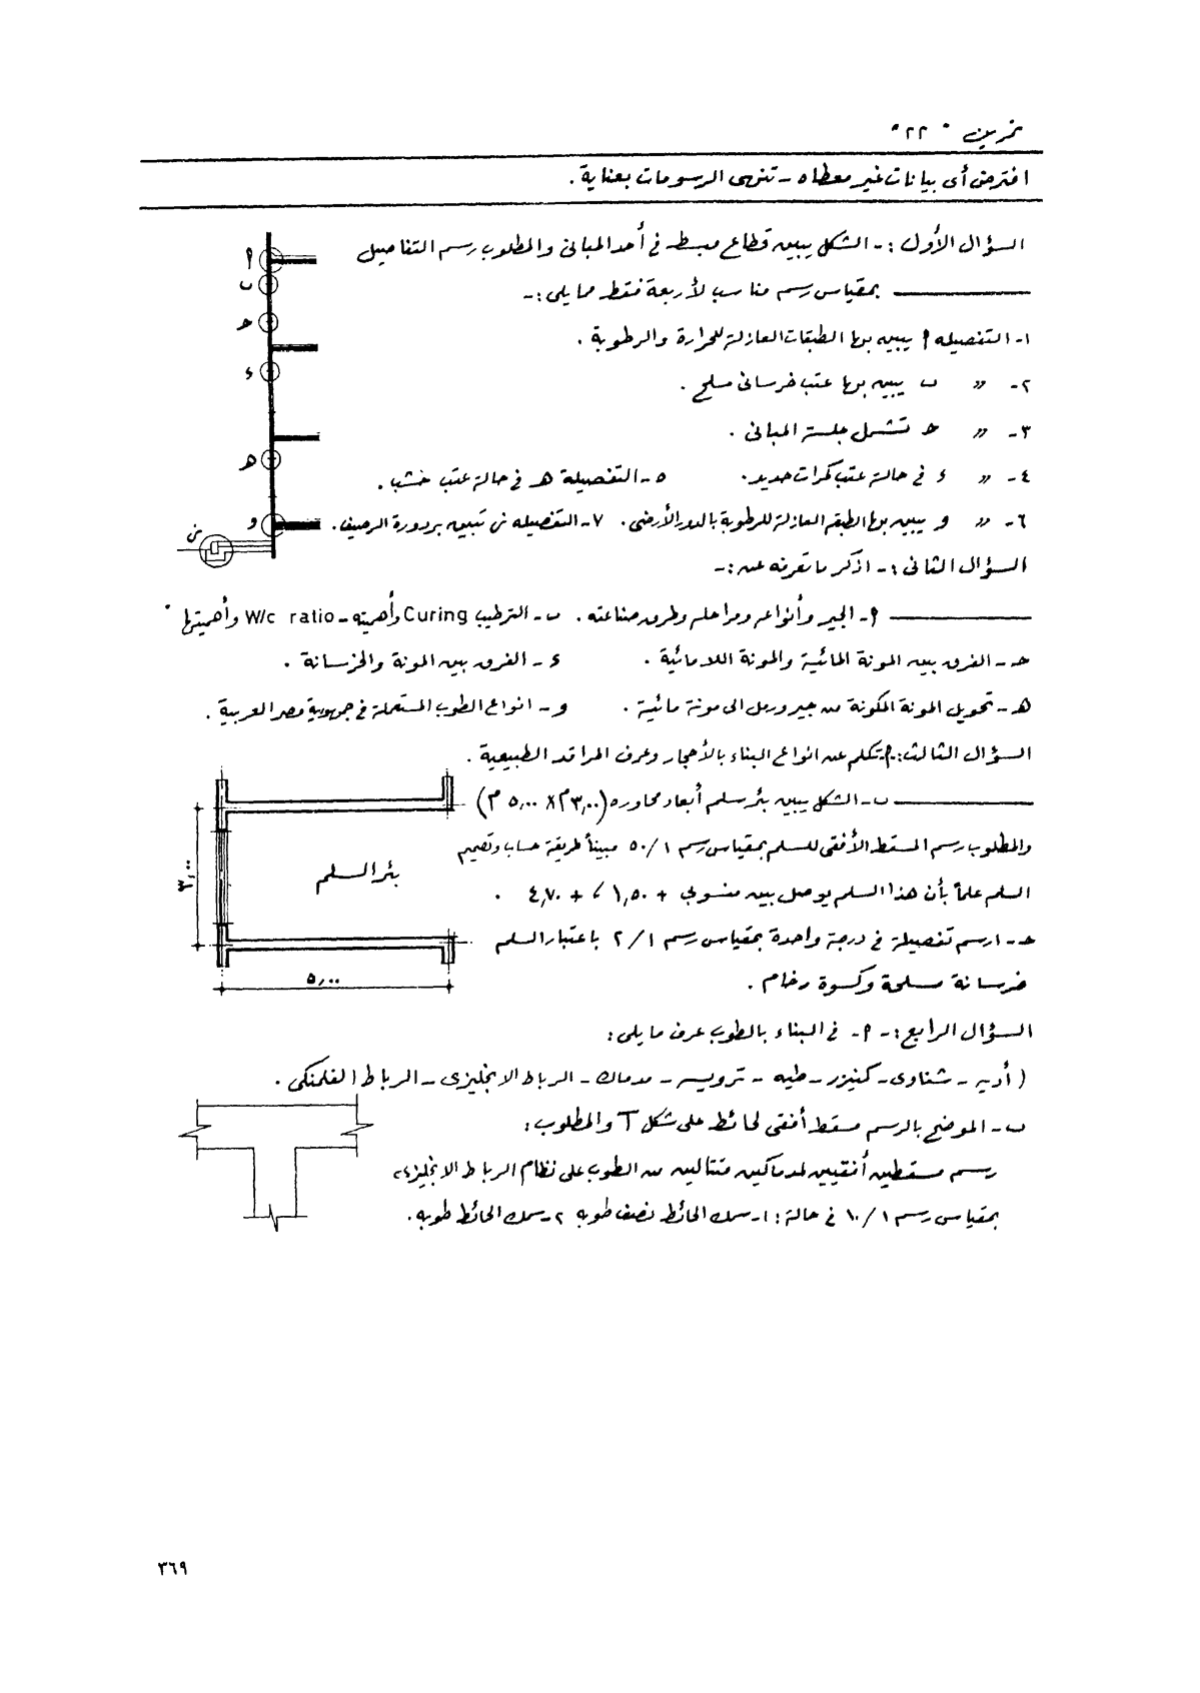 تمرين "٢٢"
افترض أى بيانات غير معطاه - تنهى الرسومات بعناية.
السؤال الأول :- الشكل يبين قطاع مبسط فى أحد المبانى والمطلوب رسم التفاصيل
بمقياس رسم مناسب لأربعة فقط مما يلى :-
١- التفصيله أ يبين بها الطبقات العازلة للحرارة والرطوبة.
٢- " ب يبين بها عتب خرسانى مسلح.
٣- " ح تشمل جلسة المبانى.
٤- " ء فى حالة عتب كمرات حديد. ٥- التفصيلة هـ فى حالة عتب خشب.
٦- " و يبين بها الطبقه العازلة للرطوبة بالدور الأرضى. ٧- التفصيله ن تبين بردورة الرصيف.
أ
ب
ح
ء
هـ
و
ن
السؤال الثانى :- اذكر ما تعرفه عن :-
أ- الجير وأنواعه ومراحله وطرق صناعته. ب- الترطيب Curing وأهميته - W/c ratio وأهميتها.
حـ- الفرق بين المونة المائية والمونة اللامائية. ء- الفرق بين المونة والخرسانة.
هـ- تحويل المونة المكونة من جير ورمل الى مونة مائية. و- انواع الطوب المستعملة فى جمهورية مصر العربية.
السؤال الثالث: أ- تكلم عن انواع البناء بالأحجار وعرف المراقد الطبيعية.
ب- الشكل يبين بئر سلم أبعاد محاوره (٣,٠٠م × ٥,٠٠ م)
والمطلوب رسم المسقط الأفقى للسلم بمقياس رسم ١/٥٠ مبيناً طريقة حساب وتصميم
السلم علماً بأن هذا السلم يوصل بين منسوبى + ١,٥٠ ، + ٤,٧٠ .
حـ- ارسم تفصيلة فى درجة واحدة بمقياس رسم ١/٢ باعتبار السلم
خرسانة مسلحة وكسوة رخام.
بئر السلم
٣,٠٠
٥,٠٠
السؤال الرابع :- أ- فى البناء بالطوب عرف ما يلى :
( أديه - شناوى - كنيزر - طيه - ترويسه - مدماك - الرباط الانجليزى - الرباط الفلمنكى .
ب- الموضح بالرسم مسقط أفقى لحائط على شكل T والمطلوب :
رسم مسقطين أفقيين لمدماكين متتالين من الطوب على نظام الرباط الانجليزى
بمقياس رسم ١/١٠ فى حالة : ١- سمك الحائط نصف طوبه ٢- سمك الحائط طوبه.
٣٦٩